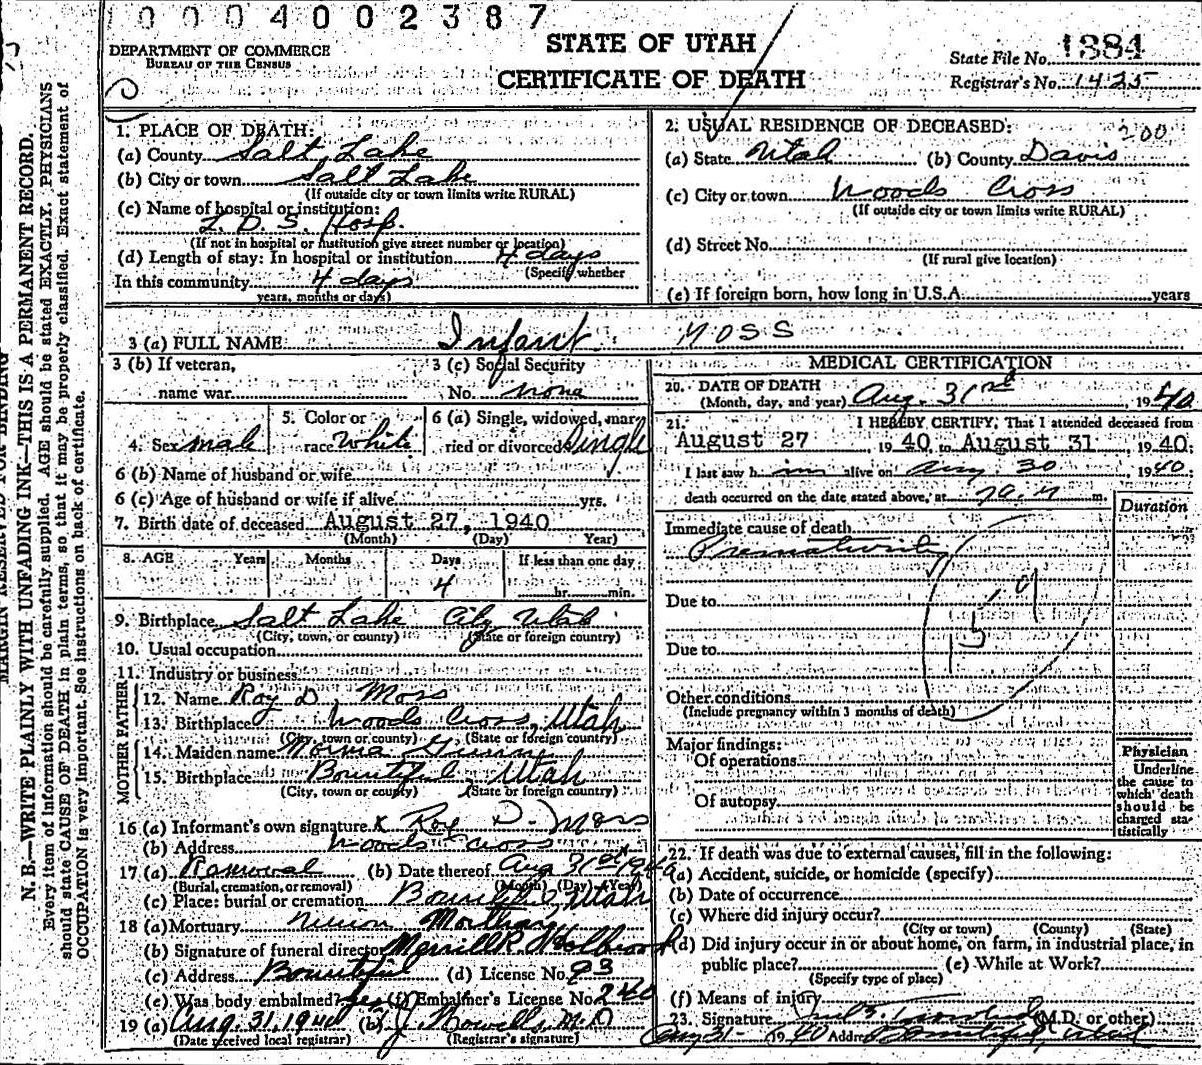 1 0 0 0 4 0 0 2 3 8 7
DEPARTMENT OF COMMERCE
BUREAU OF THE CENSUS
STATE OF UTAH
CERTIFICATE OF DEATH
State File No. 1884
Registrar's No. 1425
MARGIN RESERVED FOR BINDING
N. B.—WRITE PLAINLY WITH UNFADING INK—THIS IS A PERMANENT RECORD.
Every item of information should be carefully supplied. AGE should be stated EXACTLY. PHYSICIANS
should state CAUSE OF DEATH in plain terms, so that it may be properly classified. Exact statement of
OCCUPATION is very important. See instructions on back of certificate.
1. PLACE OF DEATH:
(a) County Salt Lake
(b) City or town Salt Lake
(If outside city or town limits write RURAL)
(c) Name of hospital or institution:
L. D. S. Hosp.
(If not in hospital or institution give street number or location)
(d) Length of stay: In hospital or institution 4 days
(Specify whether
In this community 4 days
years, months or days)
2. USUAL RESIDENCE OF DECEASED: 200
(a) State Utah (b) County Davis
(c) City or town Woods Cross
(If outside city or town limits write RURAL)
(d) Street No.
(If rural give location)
(e) If foreign born, how long in U.S.A. years
3 (a) FULL NAME Infant Moss
3 (b) If veteran, 3 (c) Social Security
name war No. none
4. Sex male 5. Color or race White 6 (a) Single, widowed, married or divorced Single
6 (b) Name of husband or wife
6 (c) Age of husband or wife if alive yrs.
7. Birth date of deceased August 27, 1940
(Month) (Day) (Year)
8. AGE Years Months Days If less than one day
4 hr. min.
9. Birthplace Salt Lake City Utah
(City, town, or county) (State or foreign country)
10. Usual occupation
11. Industry or business
FATHER
12. Name Roy D. Moss
13. Birthplace Woods Cross, Utah
(City, town or county) (State or foreign country)
MOTHER
14. Maiden name
15. Birthplace Bountiful, Utah
(City, town or county) (State or foreign country)
16 (a) Informant's own signature x Roy D. Moss
(b) Address Woods Cross
17 (a) Removal (b) Date thereof Aug 31st 1940
(Burial, cremation, or removal) (Month) (Day) (Year)
(c) Place: burial or cremation Bountiful, Utah
18 (a) Mortuary Union Mortuary
(b) Signature of funeral director Merrill R. Holbrook
(c) Address Bountiful (d) License No. 93
(e) Was body embalmed? yes (f) Embalmer's License No. 240
19 (a) Aug. 31, 1940 (b) J. Howells, M.D
(Date received local registrar) (Registrar's signature)
MEDICAL CERTIFICATION
20. DATE OF DEATH
(Month, day, and year) Aug. 31st, 1940
21. I HEREBY CERTIFY, That I attended deceased from
August 27, 1940, to August 31, 1940;
I last saw him alive on Aug. 30 1940
death occurred on the date stated above, at m.
Duration
Immediate cause of death
Prematurity
159
Due to
Due to
Other conditions
(Include pregnancy within 3 months of death)
Major findings:
Of operations
Of autopsy
Physician
Underline
the cause to
which death
should be
charged sta-
tistically
22. If death was due to external causes, fill in the following:
(a) Accident, suicide, or homicide (specify)
(b) Date of occurrence
(c) Where did injury occur?
(City or town) (County) (State)
(d) Did injury occur in or about home, on farm, in industrial place, in
public place? (e) While at Work?
(Specify type of place)
(f) Means of injury
23. Signature (M.D. or other)
Aug 31 1940 Address Bountiful, Utah